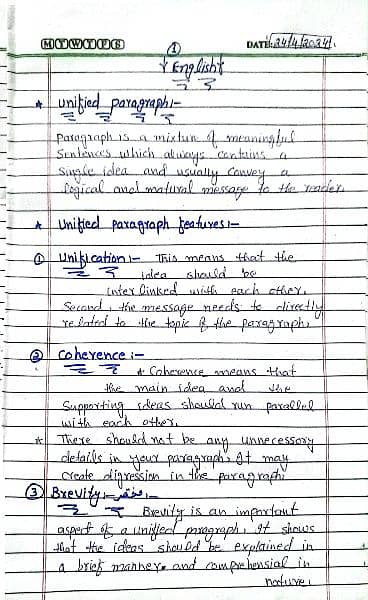 M T W T F S
①
DATE: 24/4/2024
English
* Unified paragraph:-
Paragraph is a mixture of meaningful
Sentences which always contains a
Single idea and usually convey a
logical and matural message to the reader.
* Unified paragraph features:-
① Unification:- This means that the
idea should be
inter linked with each other.
Second, the message needs to directly
related to the topic of the paragraph.
② Coherence:-
* Coherence means that
the main idea and the
Supporting ideas should run parallel
with each other.
* There should not be any unnecessary
details in your paragraph, It may
Create digression in the paragraph.
③ Brevity:- مختصر:-
Brevity is an important
aspect of a unified paragraph, It shows
that the ideas should be explained in
a brief manner and comprehensial in
nature.